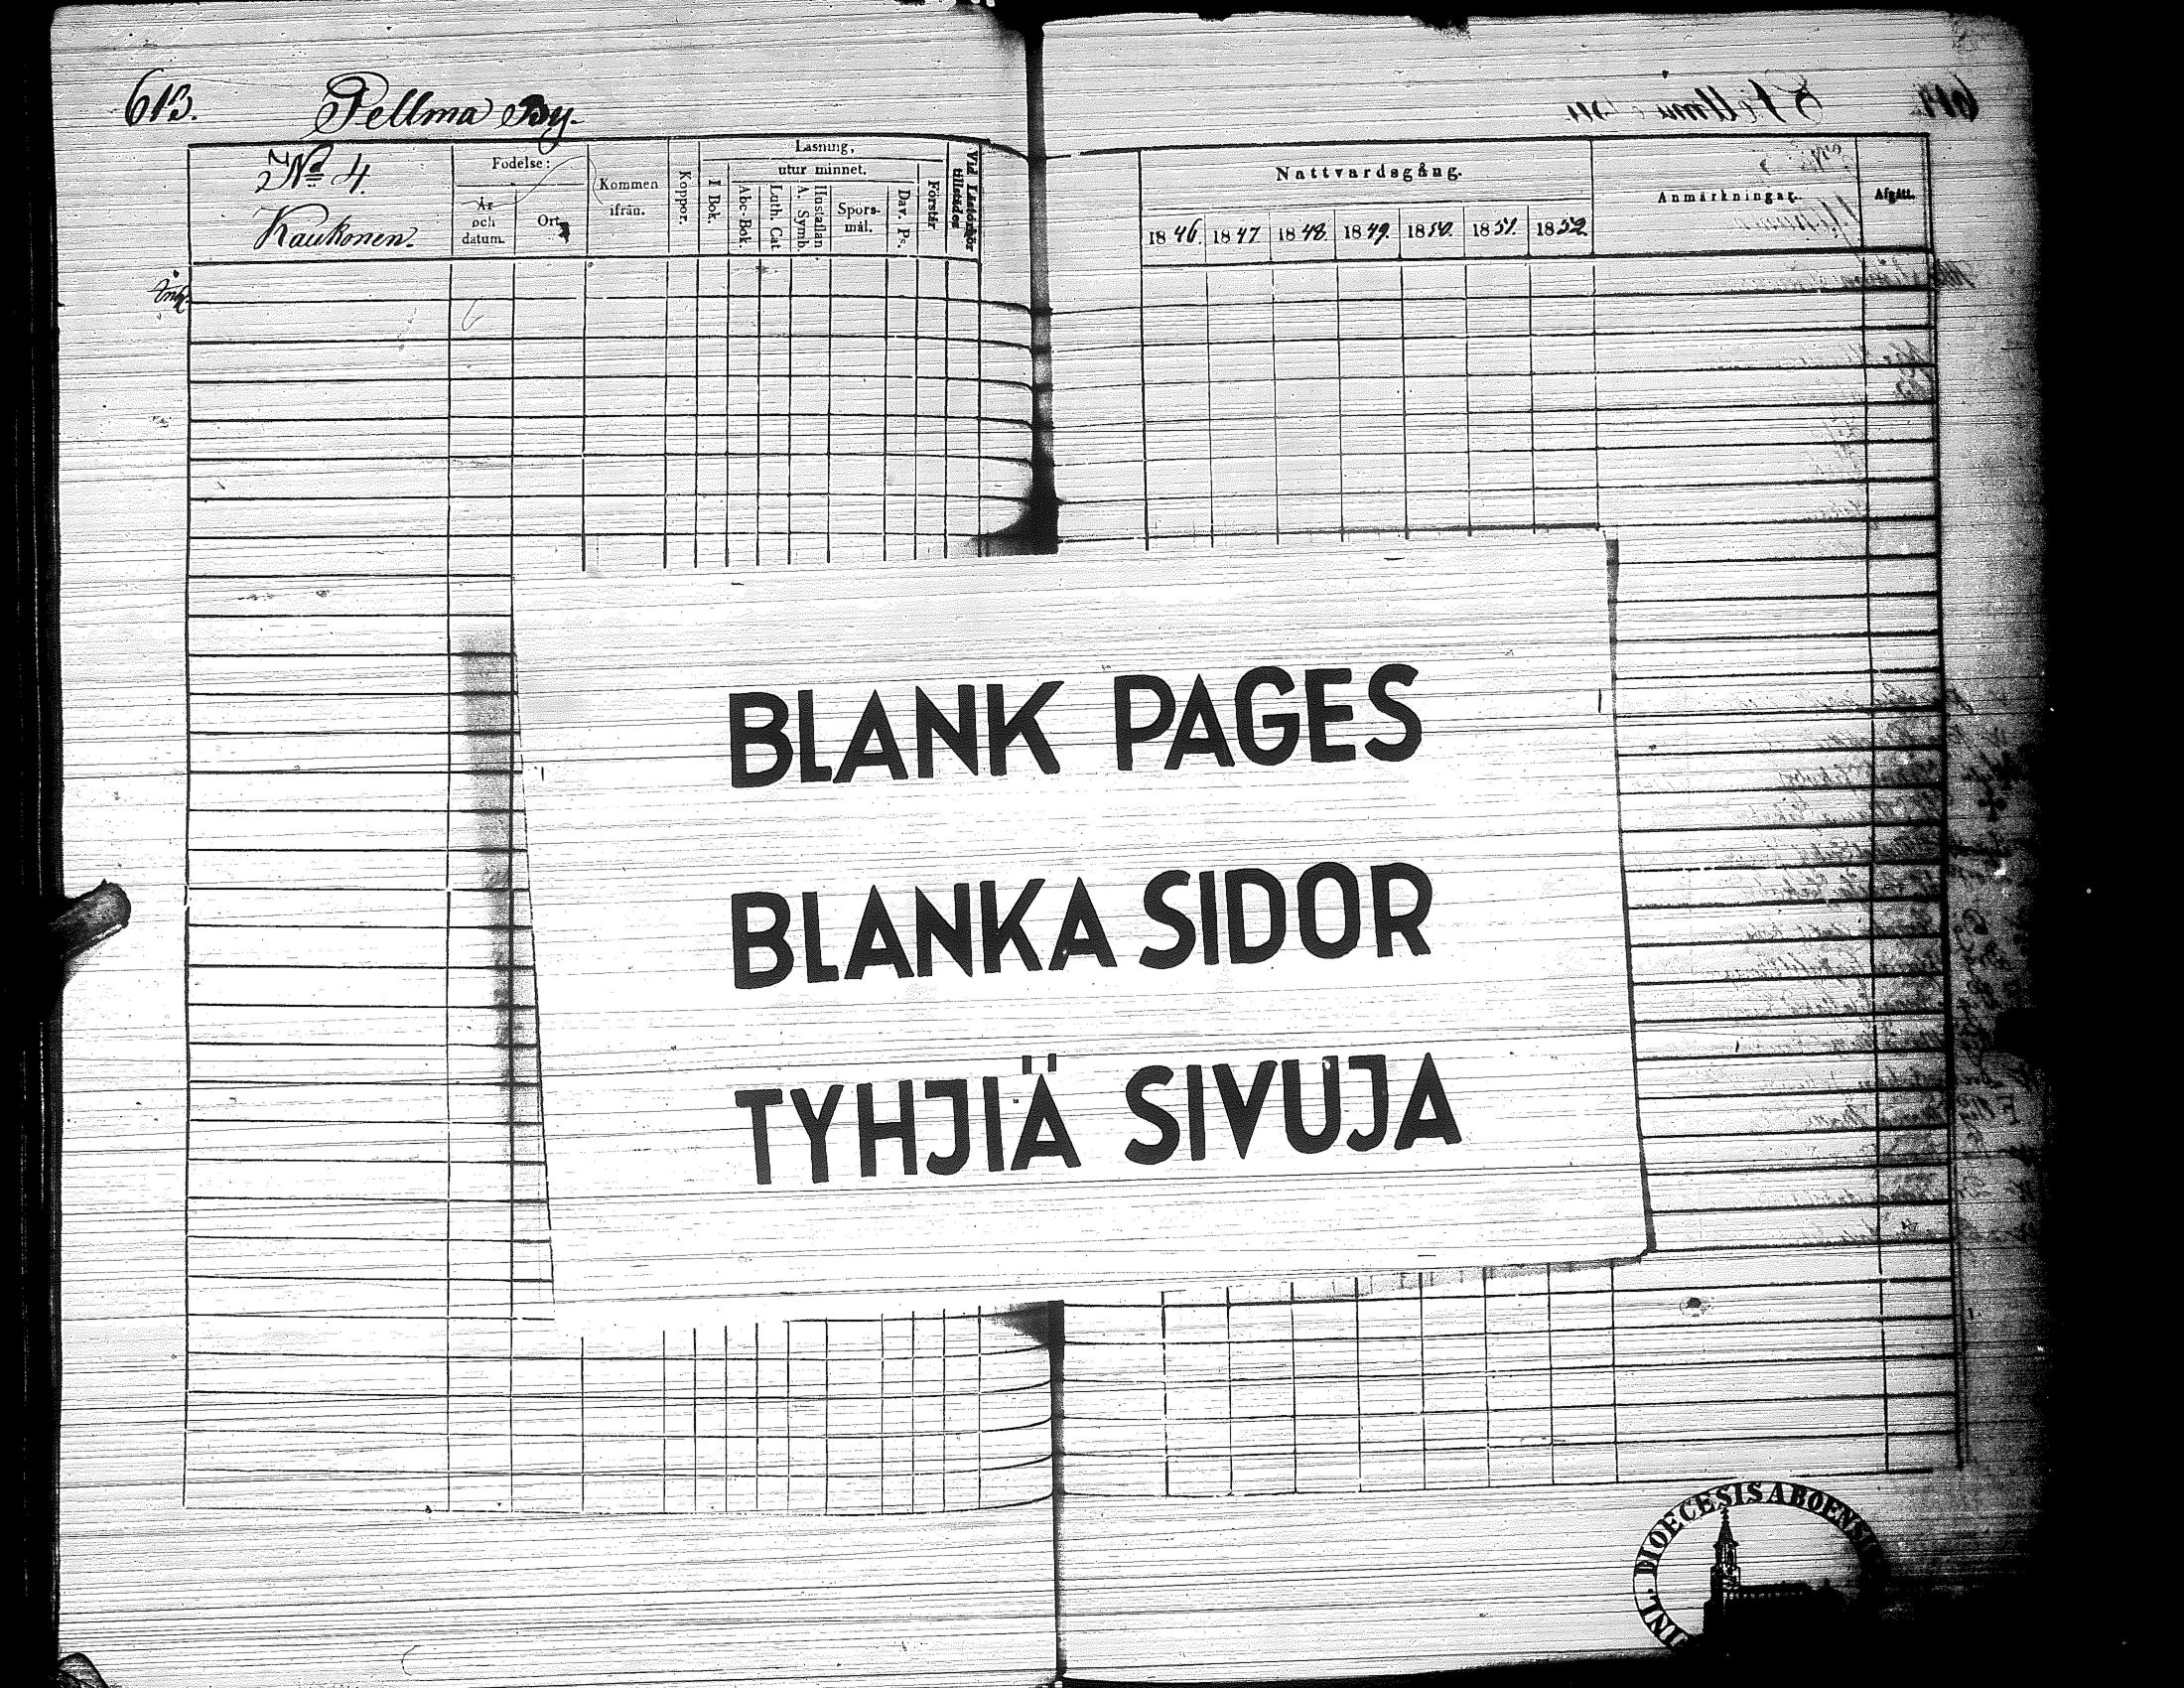 613.
Pellma By.
No 4.
Kaukonen.
Fodelse:
År och datum.
Ort.
Kommen ifrån.
Koppor.
Läsning,
I Bok.
utur minnet.
Abc-Bok.
Luth. Cat.
A. Symb.
Hustaflan
Spors-
mål.
Dav. Ps.
Förstår
Vid Läsförhör
tillstädes
Nattvardsgång.
1846. 1847 1848. 1849. 1850. 1851. 1852.
Anmärkningar.
Afgått.
BLANK PAGES
BLANKA SIDOR
TYHJIÄ SIVUJA
DIOECESIS ABOENSIS